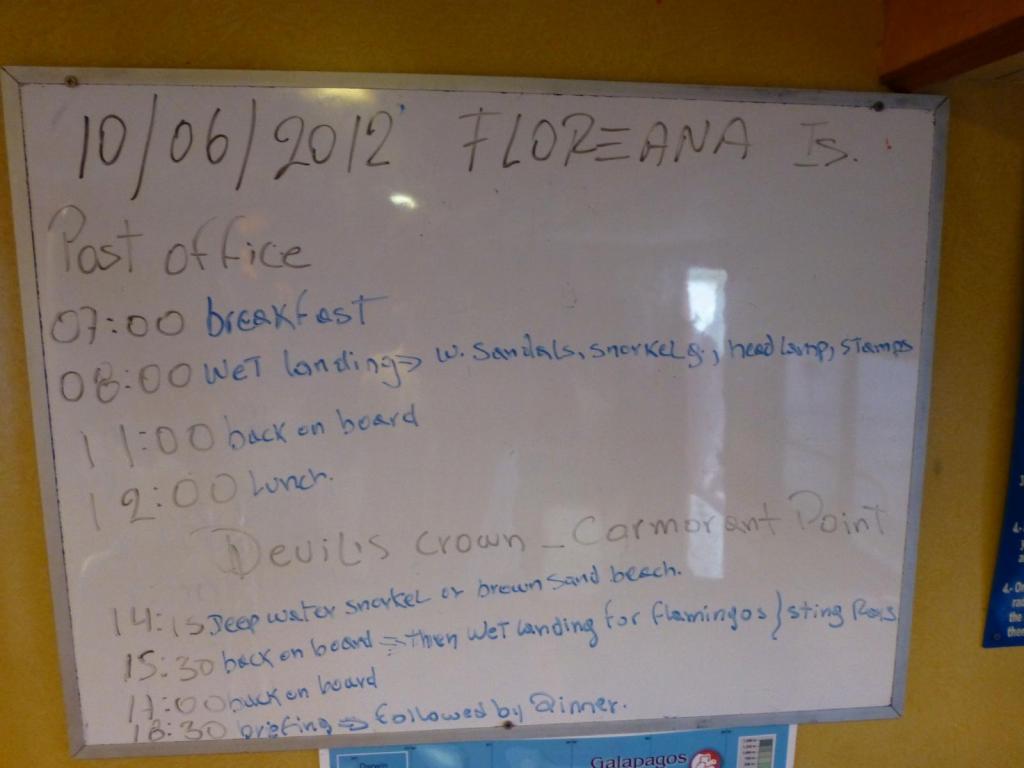 10/06/2012 FLOREANA Is.
Post office
07:00 breakfast
08:00 WET landing => w. Sandals, snorkel g., head lamp, stamps
11:00 back on board
12:00 Lunch.
Devils crown - Cormorant Point
14:15 Deep water snorkel or brown sand beach.
15:30 back on board => then WET landing for flamingos } sting Rays
17:00 back on board
18:30 briefing => followed by Dinner.
Galapagos